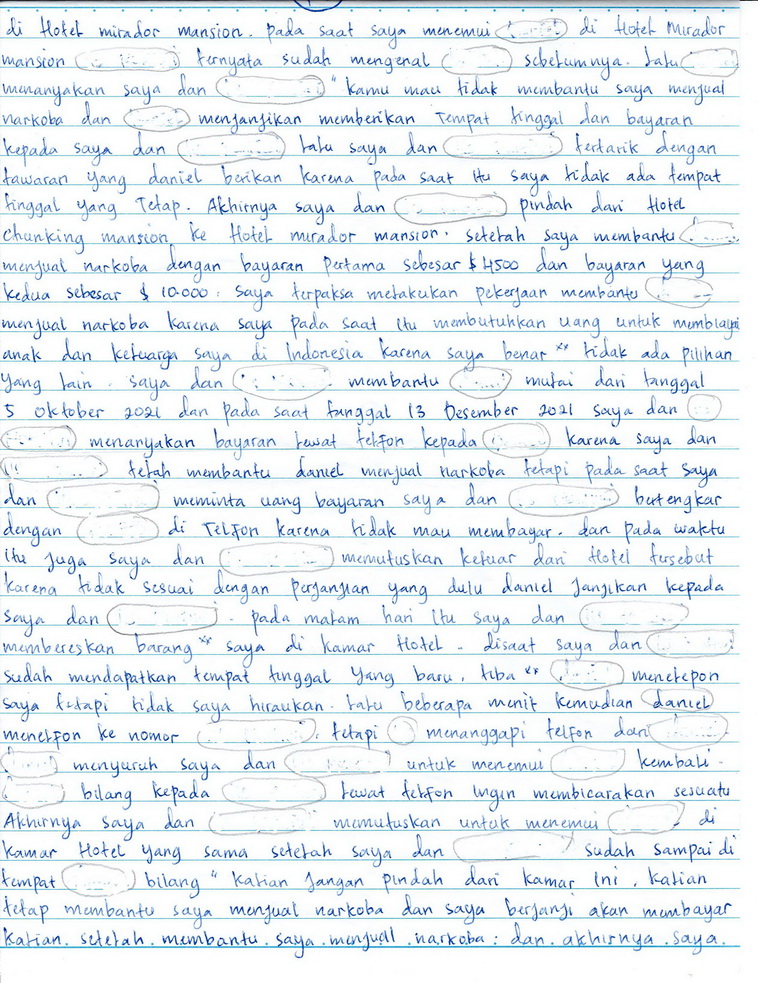 di Hotel mirador mansion. pada saat saya menemui di Hotel Mirador
mansion ternyata sudah mengenal sebelumnya. Lalu
menanyakan saya dan "kamu mau tidak membantu saya menjual
narkoba dan menjanjikan memberikan Tempat tinggal dan bayaran
kepada saya dan Lalu saya dan tertarik dengan
tawaran yang daniel berikan karena pada saat itu saya tidak ada tempat
tinggal yang Tetap. Akhirnya saya dan pindah dari Hotel
chunking mansion ke Hotel mirador mansion. setelah saya membantu
menjual narkoba dengan bayaran Pertama sebesar $ 4500 dan bayaran yang
kedua sebesar $ 10.000. saya terpaksa melakukan pekerjaan membantu
menjual narkoba karena saya pada saat itu membutuhkan uang untuk membiayai
anak dan keluarga saya di Indonesia karena saya benar ** tidak ada pilihan
yang lain. saya dan membantu mulai dari tanggal
5 oktober 2021 dan pada saat tanggal 13 Desember 2021 saya dan
menanyakan bayaran Lewat telfon kepada karena saya dan
telah membantu daniel menjual narkoba tetapi pada saat saya
dan meminta uang bayaran saya dan bertengkar
dengan di Telfon karena tidak mau membayar. dan pada waktu
itu Juga saya dan memutuskan keluar dari Hotel tersebut
karena tidak sesuai dengan perjanjian yang dulu daniel Janjikan kepada
saya dan . pada malam hari itu saya dan
membereskan barang ** saya di kamar Hotel. disaat saya dan
sudah mendapatkan tempat tinggal yang baru. tiba ** menelepon
saya tetapi tidak saya hiraukan. Lalu beberapa menit kemudian daniel
menelfon ke nomor . tetapi menanggapi telfon dari
menyuruh saya dan untuk menemui kembali.
bilang kepada Lewat telfon Ingin membicarakan sesuatu
Akhirnya saya dan memutuskan untuk menemui di
kamar Hotel yang sama setelah saya dan sudah sampai di
tempat bilang "kalian Jangan pindah dari kamar ini. kalian
tetap membantu saya menjual narkoba dan saya berjanji akan membayar
kalian. setelah. membantu. saya. menjual. narkoba: dan. akhirnya. saya.